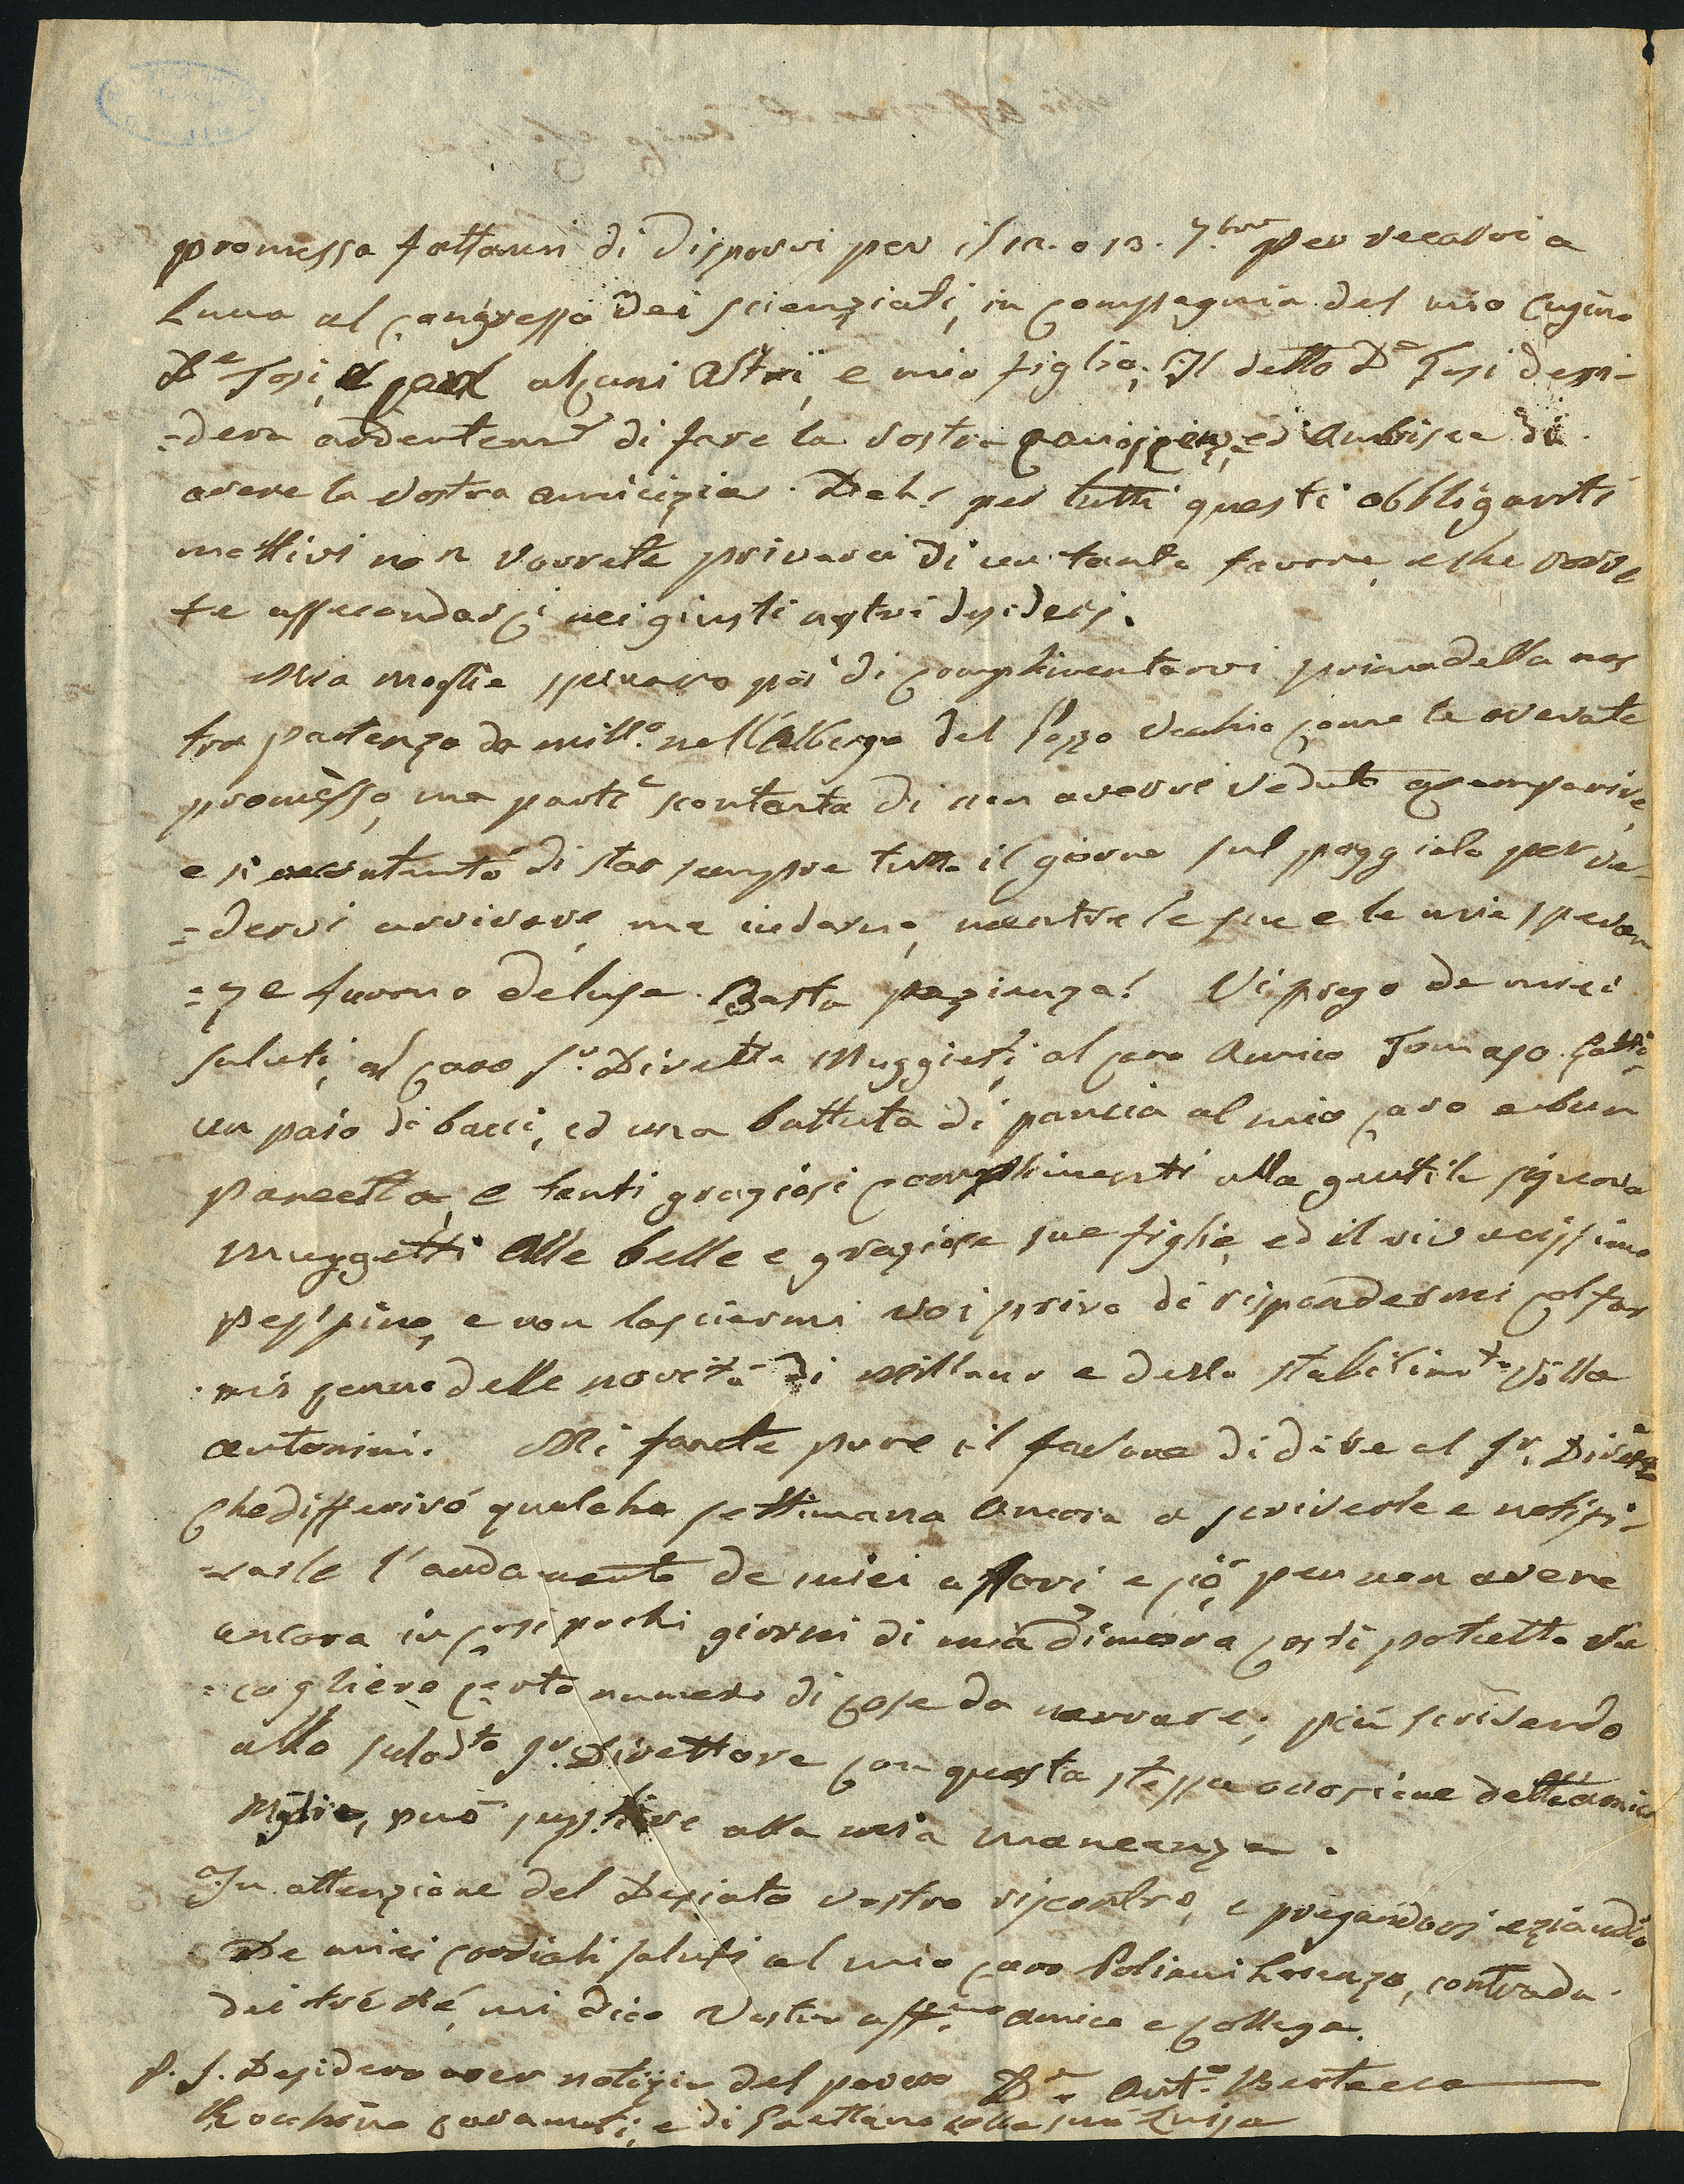 promessa fattami di disporvi per il 12. o 13. 7.bre per recarvi a
Lucca al congresso dei scienziati, in compagnia del mio cugino
Dr Tosi, alcuni altri, e mio figlio; Il detto Dr Tosi desi-
=dera ardentemte di fare la vostra ed ambisce di
avere la vostra amicizia. Deh! per tutti questi obbliganti
mottivi non vorrete privarci di un tanto favore, e che vorre
te assecondarci nei giusti nostri desiderj.
Mia moglie sperava poi di complimentarvi prima della nos
tra partenza da Mill.o nell'Albergo del Pozzo Vecchio come le avevate
promesso, ma partì scontenta di non avervi veduto a comparire,
e si di star sempre tutto il giorno sul poggiolo per ve-
=dervi arrivare, ma indarno, mentre le sue e le mie speran
=ze furono deluse. Basta pazienza! Vi prego de miei
saluti, al caro Sr. Dirette Muggieti, al caro Amico Tomaso
un paio di bacci, ed una battuta di pancia al mio caro e bun
Pancetta, e tanti graziosi complimenti alla gentile signora
Muggetti alle belle e graziose sue figlie, ed il vivacissimo
Peppino, e non lasciarmi voi privo di rispondermi col far
mi cenno delle novità di Millano e dello stabilimto Villa
Antonini. Mi farete pure il favore di dire al Sr. Dirette
che differirò qualche settimana ancora a scriverle e notifi-
=carle l'andamento de miei affari, e ciò per non avere
ancora in così pochi giorni di mia dimora costì potutto ra
=cogliere certo numero di cose da narrare; più scrivendo
allo sulodto Sr. Direttore con questa stessa occasione dell'amico
Miglio, può supplire alla mia mancanza.
In attenzione del Desiato vostro riscontro, e pregandovi eziandio
De miei cordiali saluti al mio caro Poliani Lorenzo, contrada
dei tre Ré, mi dico Vostro aff.mo amico e collega.
P. S. Desidero aver notizia del povero Dr. Ant.o Bertacca
Rocchino e di Gaettano colla sua Luisa